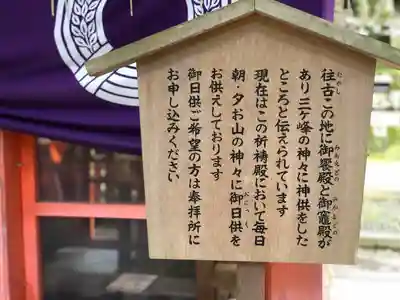 往古この地に御饗殿と御竈殿が
あり三ケ峰の神々に神供をした
ところと伝えられています
現在はこの祈祷殿において毎日
朝・夕お山の神々に御日供を
お供えしております
御日供ご希望の方は奉拝所に
お申し込みください